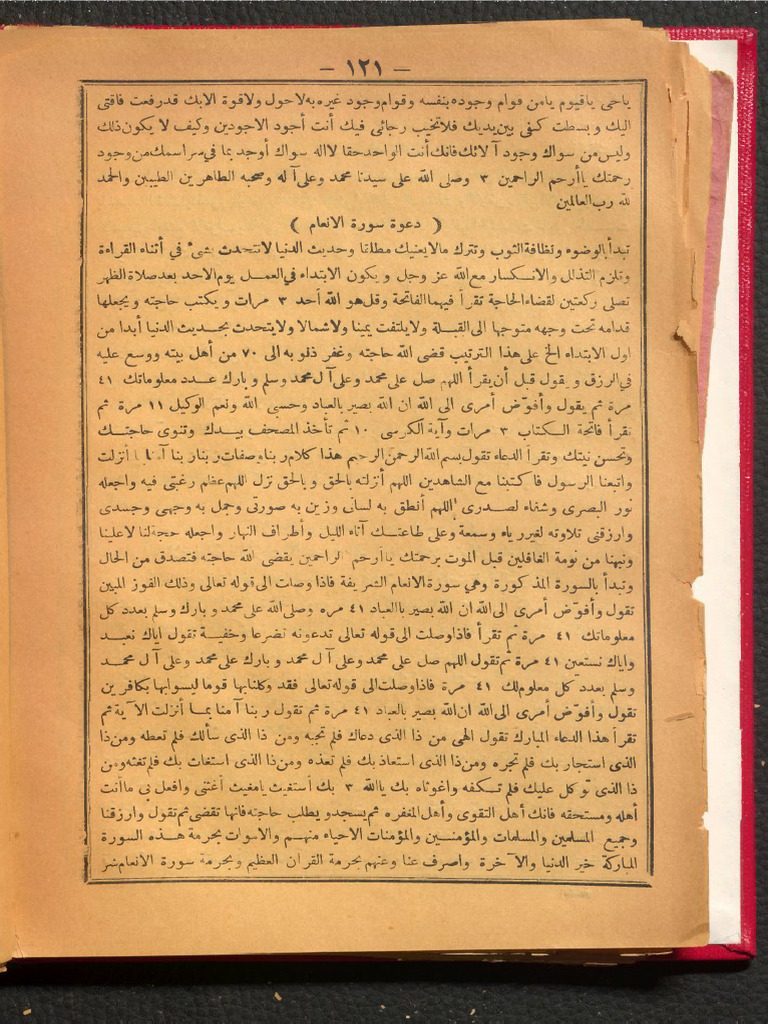 — ١٢١ —
ياحى ياقيوم يامن قوام وجوده بنفسه وقوام وجود غيره به لاحول ولاقوة الابك قدرفعت فاقتى
اليك وبسطت كفى بين يديك فلاتخيب رجائى فيك أنت أجود الاجودين وكيف لا يكون ذلك
وليس من سواك وجود آلائك فانك أنت الواحد حقا لااله سواك أوجد بما فى سراسمك من وجود
رحمتك ياأرحم الراحمين ٣ وصلى الله على سيدنا محمد وعلى آله وصحبه الطاهرين الطيبين والحمد
لله رب العالمين
( دعوة سورة الانعام )
تبدأ بالوضوء ونظافة الثوب وتترك مالايعنيك مطلقا وحديث الدنيا لاتتحدث بشئ فى أثناء القراءة
وتلزم التذلل والانكسار مع الله عز وجل ويكون الابتداء فى العمل يوم الاحد بعد صلاة الظهر
تصلى ركعتين لقضاء الحاجة تقرأ فيهما الفاتحة وقل هو الله أحد ٣ مرات ويكتب حاجته ويجعلها
قدامه تحت وجهه متوجها الى القبلة ولايلتفت يمينا ولاشمالا ولايتحدث بحديث الدنيا أبدا من
اول الابتداء الخ على هذا الترتيب قضى الله حاجته وغفر ذنوبه الى ٧٠ من أهل بيته ووسع عليه
فى الرزق ويقول قبل أن يقرأ اللهم صل على محمد وعلى آل محمد وسلم وبارك عدد معلوماتك ٤١
مرة ثم يقول وأفوّض أمرى الى الله ان الله بصير بالعباد وحسبى الله ونعم الوكيل ١١ مرة ثم
تقرأ فاتحة الكتاب ٣ مرات وآية الكرسى ١٠ ثم تأخذ المصحف بيدك وتنوى حاجتك
وتحسن نيتك وتقرأ الدعاء تقول بسم الله الرحمن الرحيم هذا كلام ربنا وصفات ربنا ربنا آمنا بما أنزلت
واتبعنا الرسول فاكتبنا مع الشاهدين اللهم أنزلته بالحق وبالحق نزل اللهم عظم رغبتى فيه واجعله
نور البصرى وشفاء لصدرى اللهم أنطق به لسانى وزين به صورتى وجمل به وجهى وجسدى
وارزقنى تلاوته لغير رياء وسمعة وعلى طاعتك آناء الليل وأطراف النهار واجعله حجة لنا لاعلينا
ونبهنا من نومة الغافلين قبل الموت برحمتك ياأرحم الراحمين يقضى الله حاجته فتصدق من الحال
وتبدأ بالسورة المذكورة وهى سورة الانعام الشريفة فاذا وصلت الى قوله تعالى وذلك الفوز المبين
تقول وأفوّض أمرى الى الله ان الله بصير بالعباد ٤١ مره وصلى الله على محمد وبارك وسلم بعدد كل
معلوماتك ٤١ مرة ثم تقرأ فاذا وصلت الى قوله تعالى تدعونه تضرعا وخفية تقول اياك نعبد
واياك نستعين ٤١ مرة ثم تقول اللهم صل على محمد وعلى آل محمد وبارك على محمد وعلى آل محمد
وسلم بعدد كل معلوم لك ٤١ مرة فاذا وصلت الى قوله تعالى فقد وكلنا بها قوما ليسوا بها بكافرين
تقول وأفوّض أمرى الى الله ان الله بصير بالعباد ٤١ مرة ثم تقول ربنا آمنا بما أنزلت الآية ثم
تقرأ هذا الدعاء المبارك تقول الهى من ذا الذى دعاك فلم تجبه ومن ذا الذى سألك فلم تعطه ومن ذا
الذى استجار بك فلم تجره ومن ذا الذى استعاذ بك فلم تعذه ومن ذا الذى استغاث بك فلم تغثه ومن
ذا الذى توكل عليك فلم تسكفه واغوثاه بك ياالله ٣ بك أستغيث يامغيث أغثنى وافعل بى ماأنت
أهله ومستحقه فانك أهل التقوى وأهل المغفره ثم يسجد ويطلب حاجته فانها تقضى ثم تقول وارزقنا
وجميع المسلمين والمسلمات والمؤمنين والمؤمنات الاحياء منهم والاموات بحرمة هذه السورة
المباركة خير الدنيا والآخرة واصرف عنا وعنهم بحرمة القران العظيم وبحرمة سورة الانعام شر